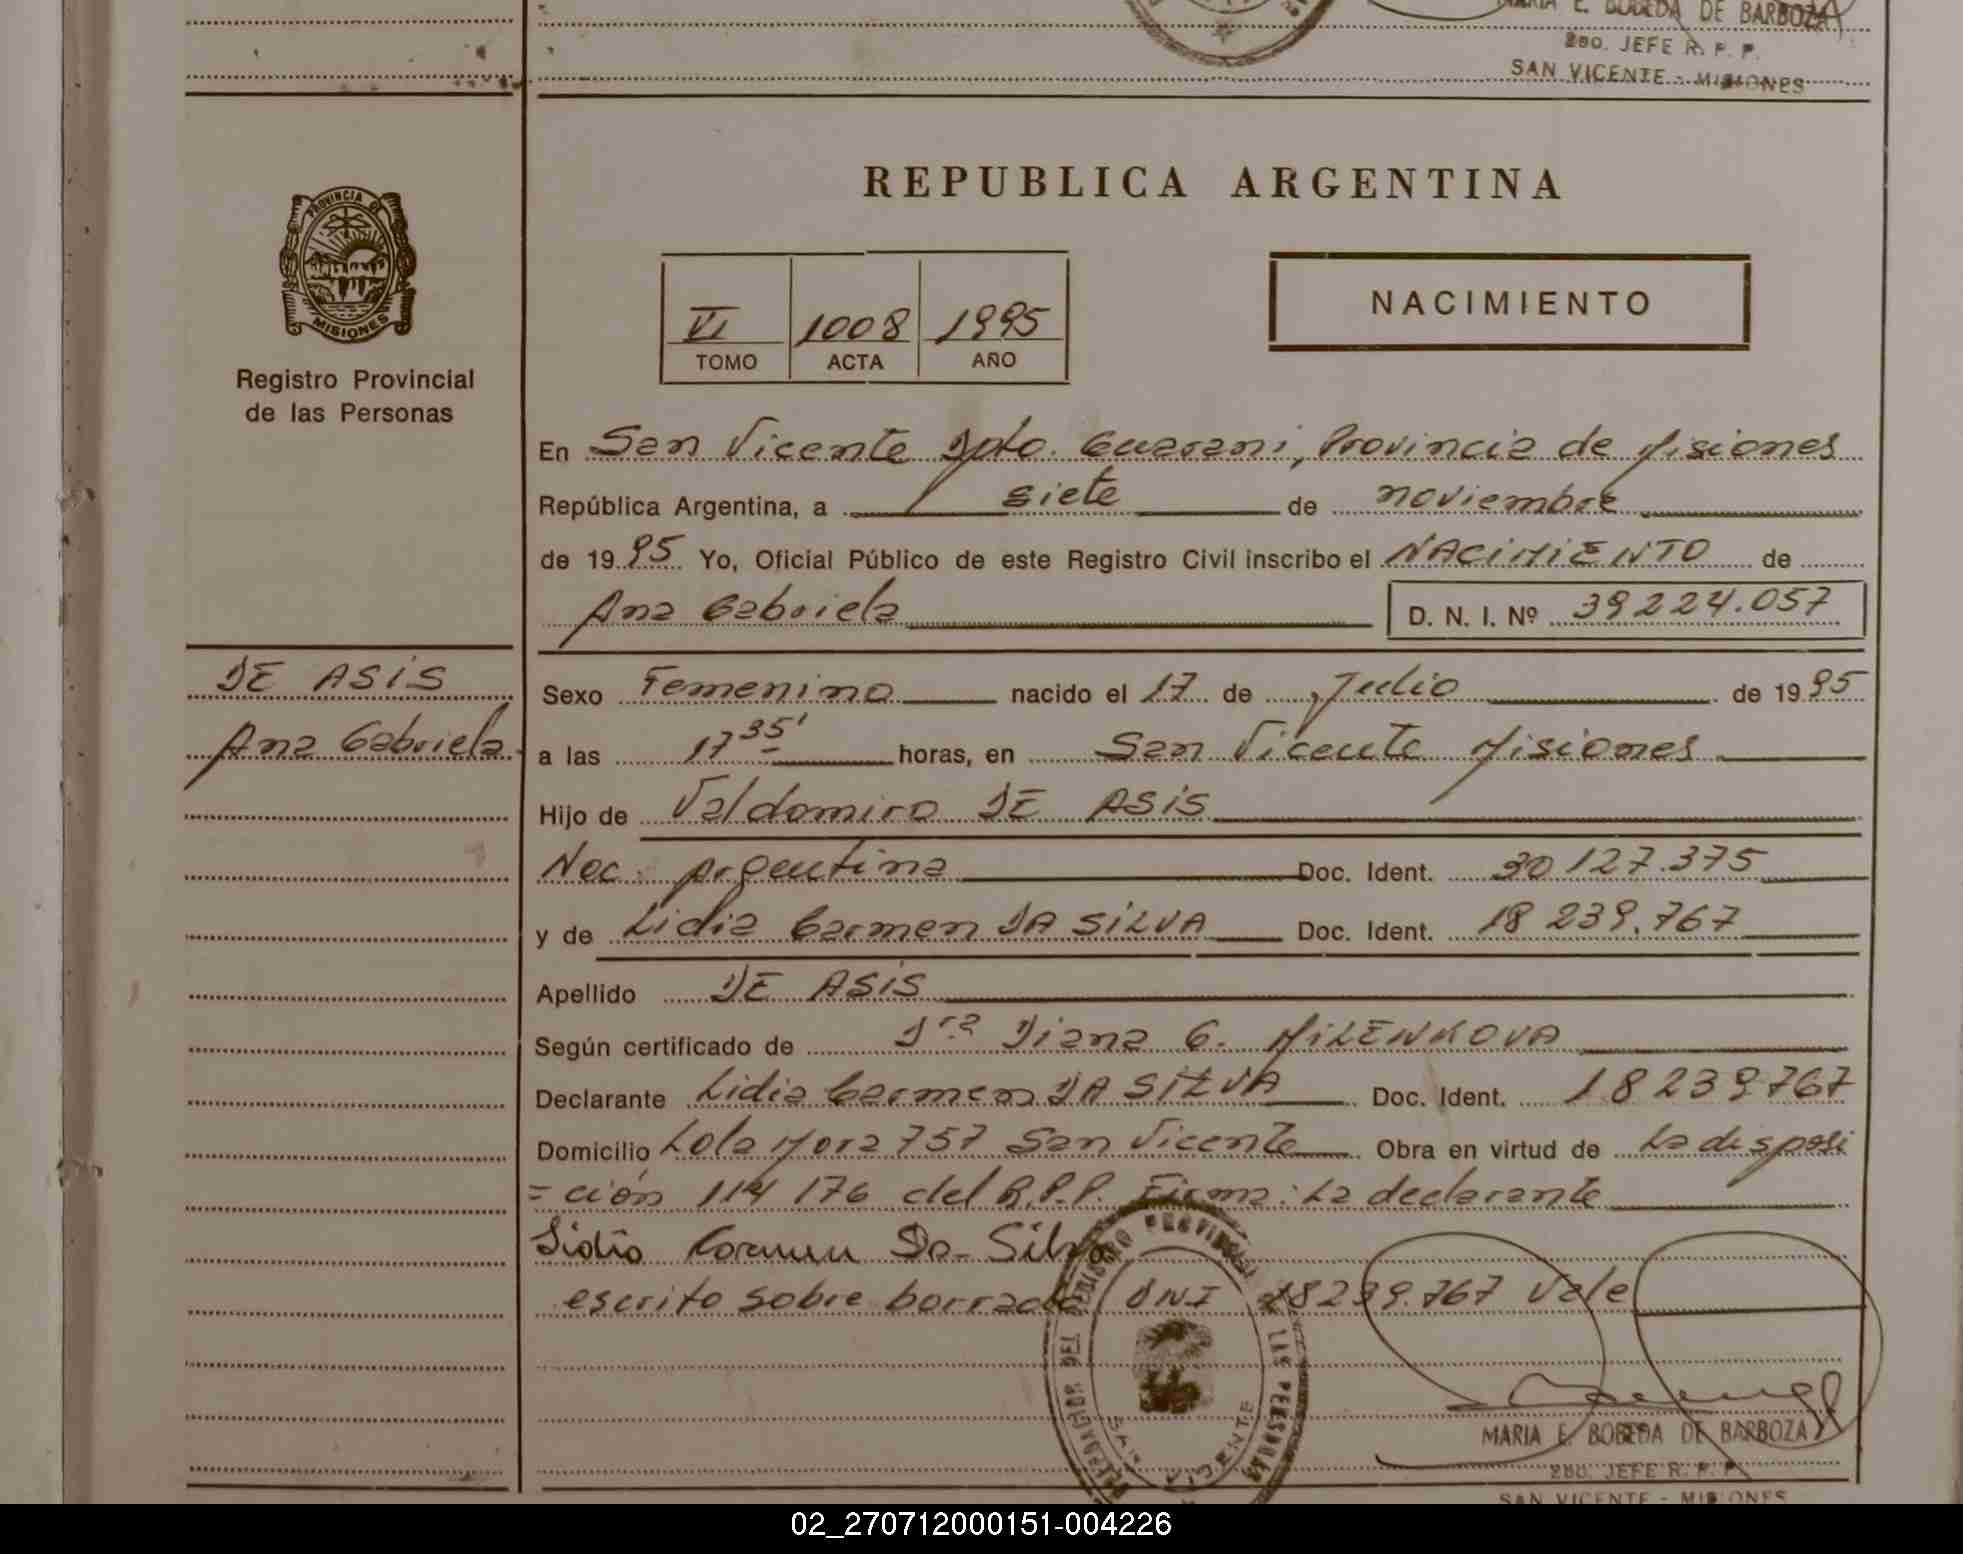 MARIA E. BOBEDA DE BARBOZA
2do. JEFE R. P. P.
SAN VICENTE - MISIONES
PROVINCIA DE
MISIONES
Registro Provincial
de las Personas
REPUBLICA ARGENTINA
VI 1008 1995
TOMO ACTA AÑO
NACIMIENTO
En San Vicente Dpto. Guarani, Provincia de Misiones
República Argentina, a siete de noviembre
de 1995 Yo, Oficial Público de este Registro Civil inscribo el NACIMIENTO de
Ana Gabriela D. N. I. Nº 39224.057
DE ASIS
Ana Gabriela
Sexo Femenino nacido el 17 de Julio de 1995
a las 17 35' horas, en San Vicente Misiones
Hijo de Valdomiro DE ASIS
Nac. Argentina Doc. Ident. 30 127.375
y de Lidia Carmen DA SILVA Doc. Ident. 18 239.767
Apellido DE ASIS
Según certificado de Dra Diana G. MILENKOVA
Declarante Lidia Carmen DA SILVA Doc. Ident. 18239767
Domicilio Lola Mora 757 San Vicente Obra en virtud de La disposi
=ción 114 176 del R.P.P. Firma: La declarante
Lidia Carmen Da Silva
escrito sobre borrado DNI 18239.767 Vale
DEL REGISTRO PROVINCIAL DE LAS PERSONAS
SAN VICENTE
MARIA E. BOBEDA DE BARBOZA
2do. JEFE R. P. P.
SAN VICENTE - MISIONES
02_270712000151-004226